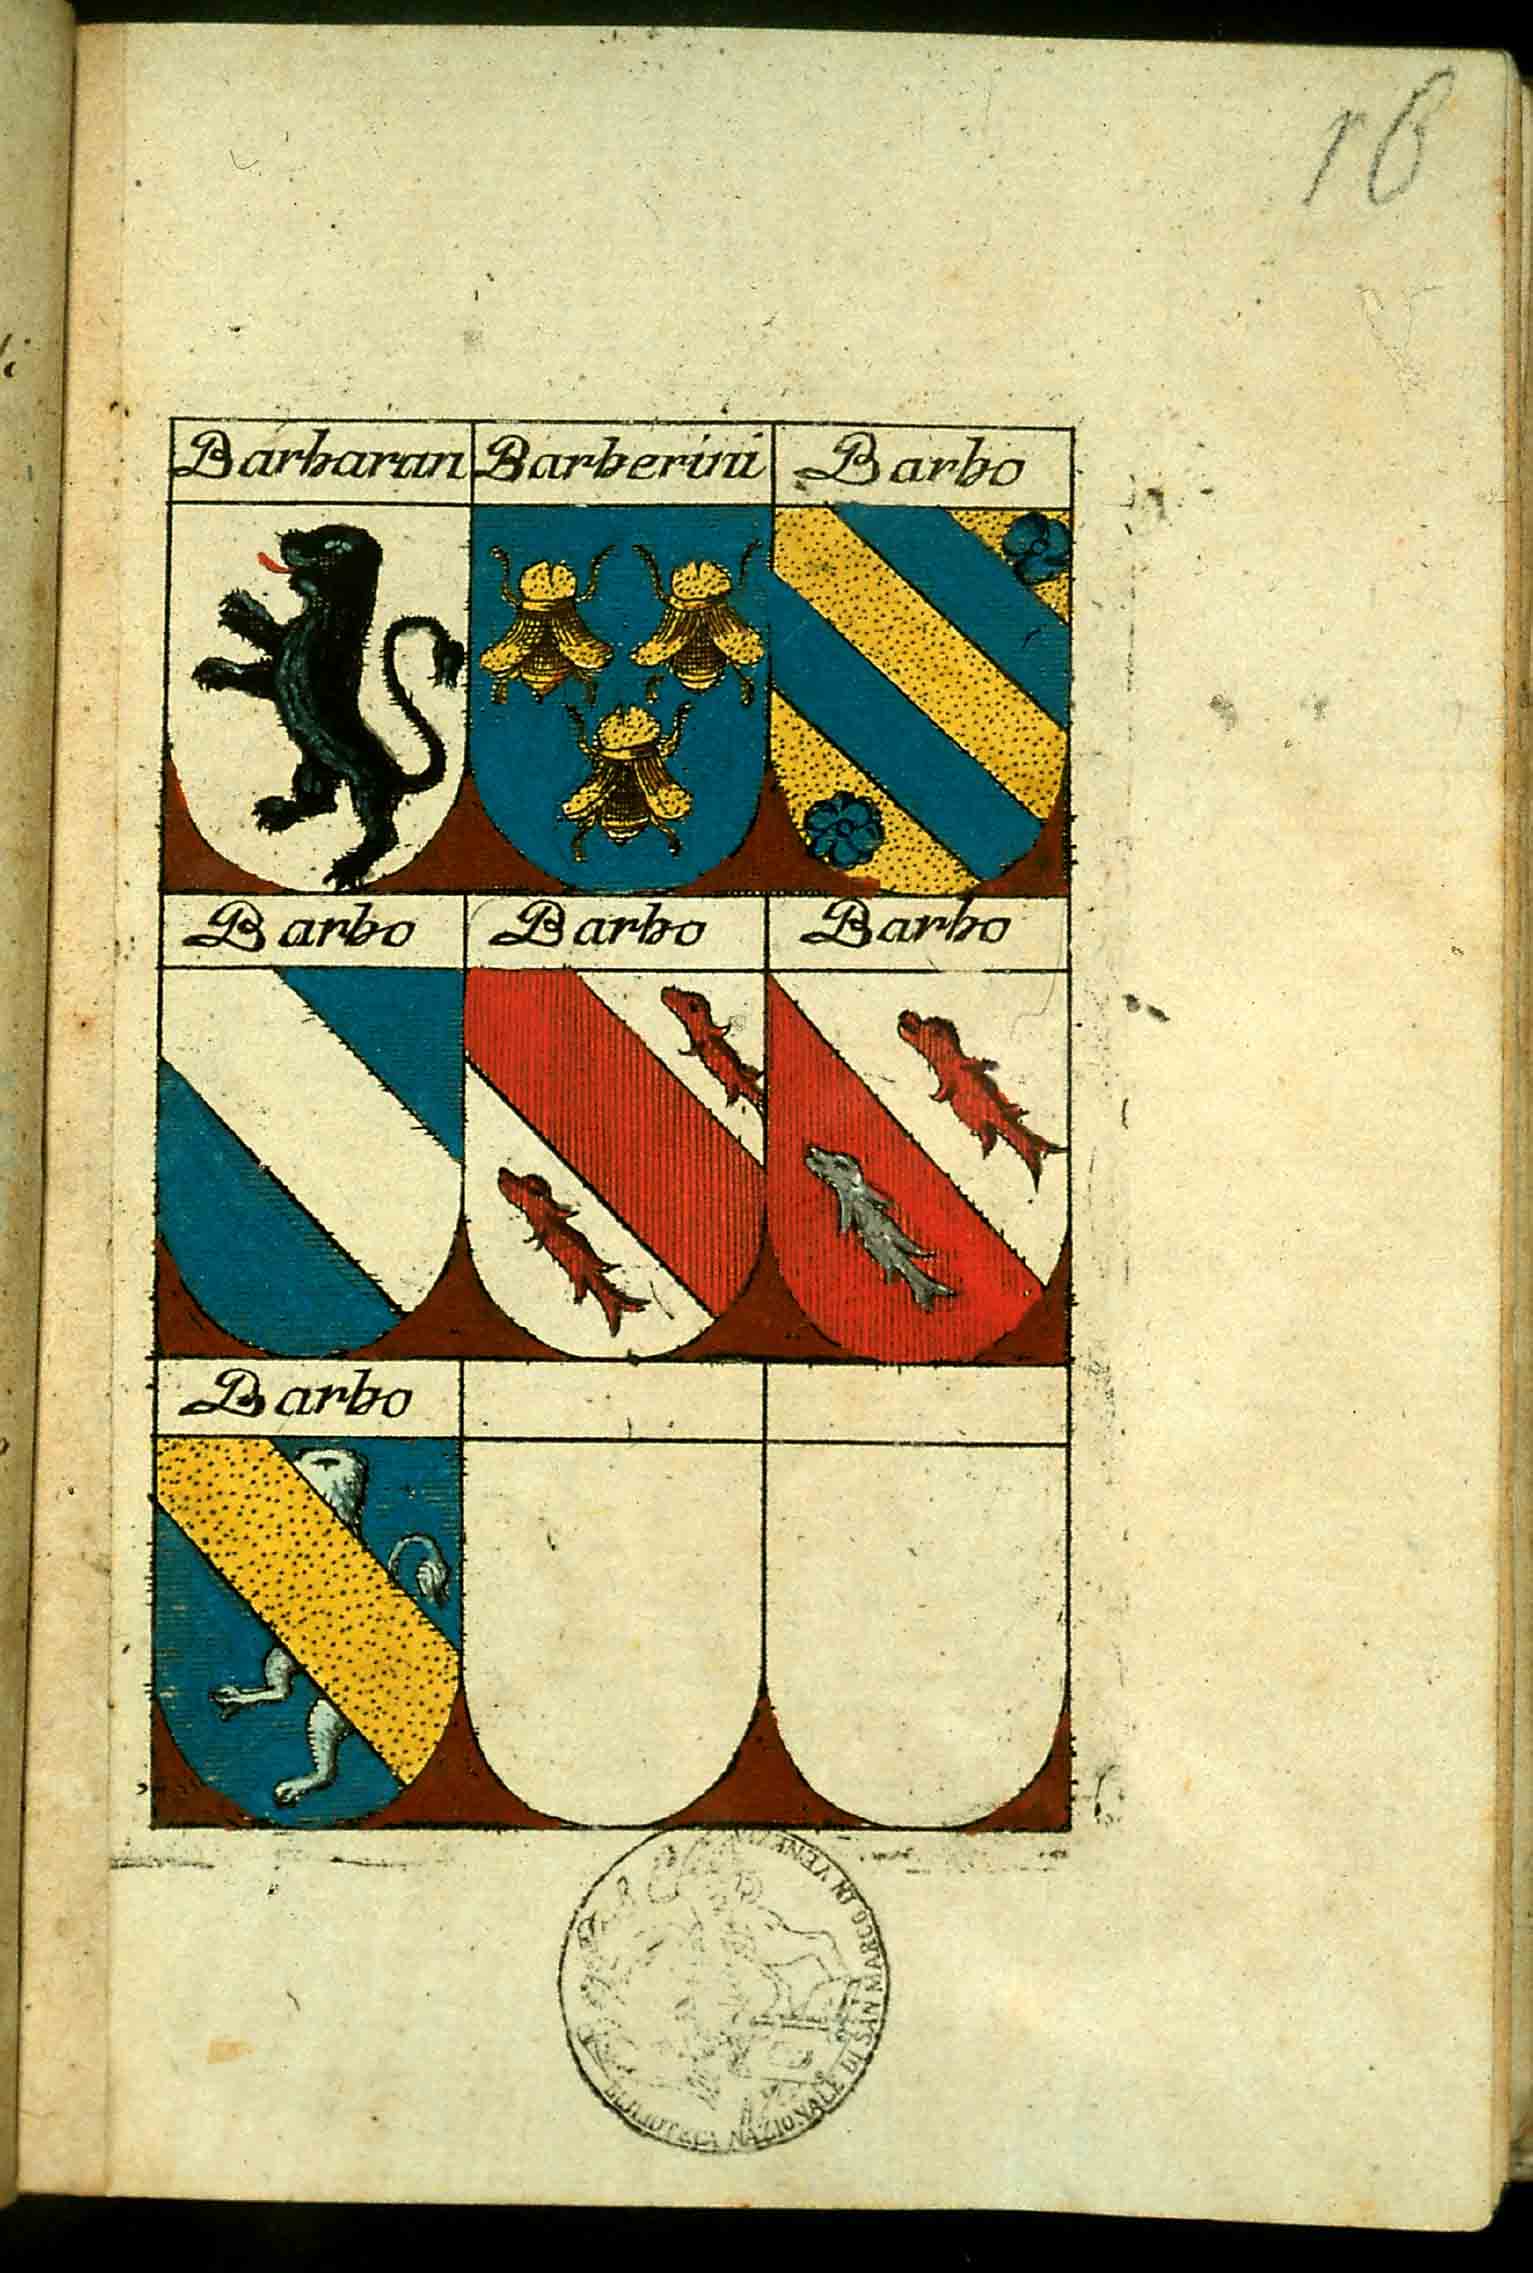 18
Barbaran Barberini Barbo
Barbo Barbo Barbo
Barbo
BIBLIOTECA NAZIONALE DI SAN MARCO IN VENEZIA